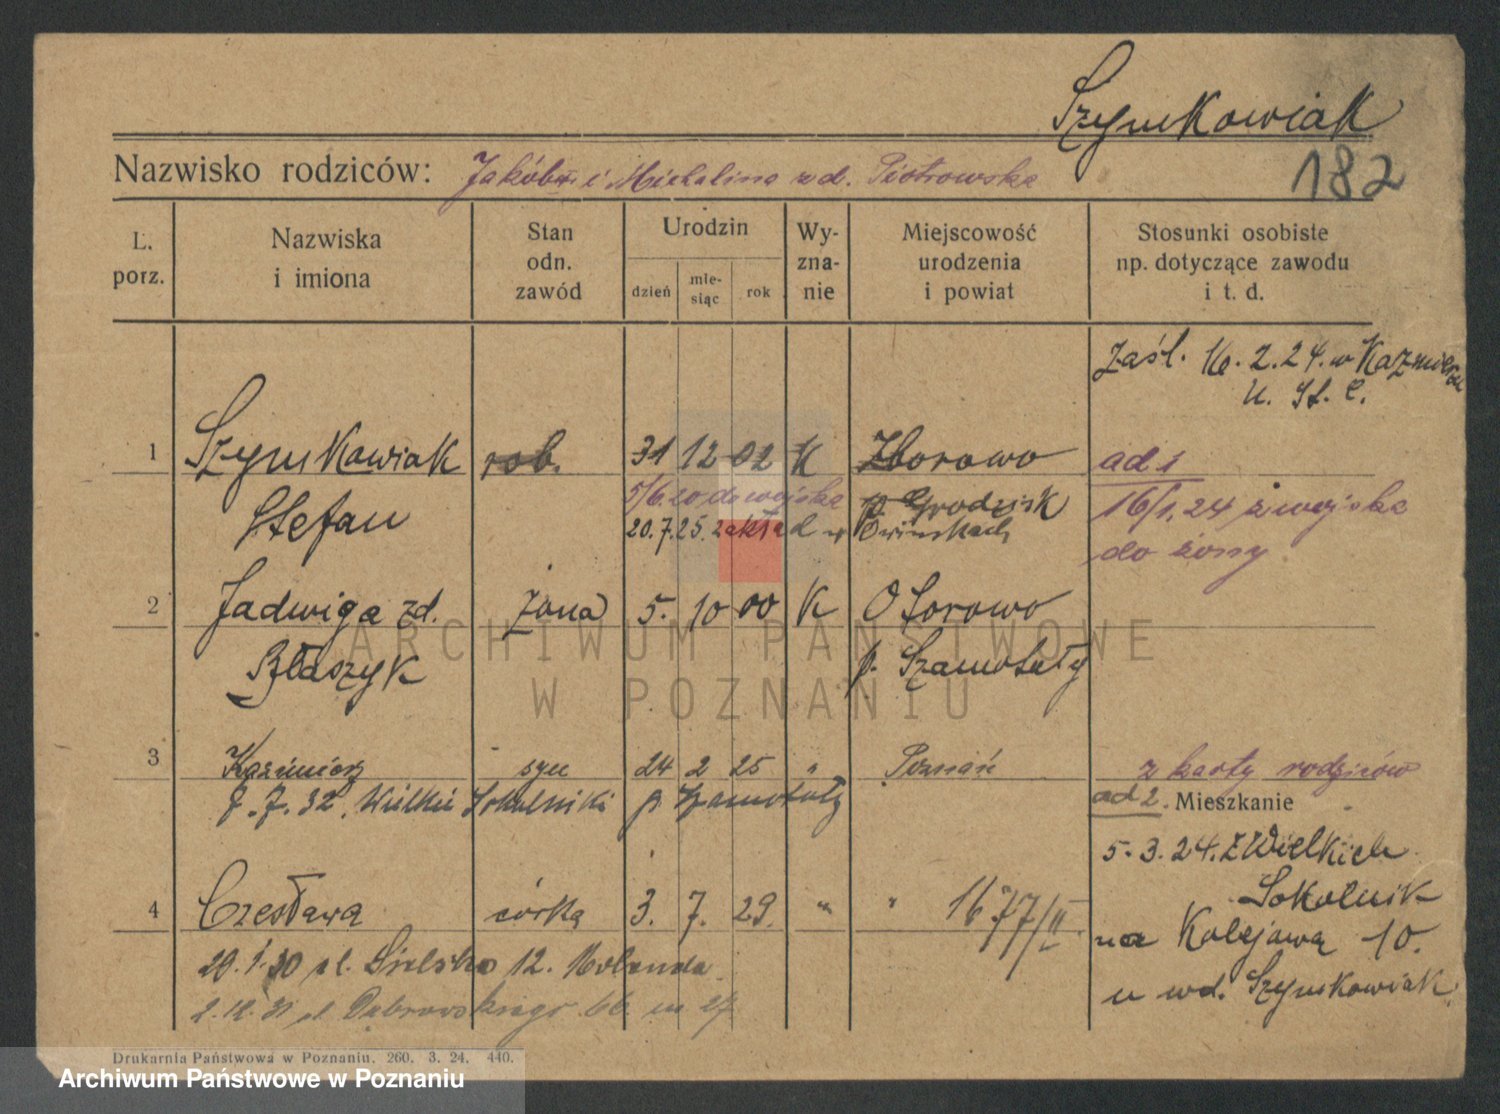 Szymkowiak
182
Nazwisko rodziców: Jakób i Michalina zd. Piotrowska
L. porz.
Nazwiska i imiona
Stan odn. zawód
Urodzin
dzień mie-siąc rok
Wy-zna-nie
Miejscowość urodzenia i powiat
Stosunki osobiste np. dotyczące zawodu i t. d.
Zaśl. 16.2.24. w Kazmierzu
U. St. C.
1 Szymkowiak rob. 31 12 02 K Zborowo ad 1
Stefan 5/6.20 do wojska p. Grodzisk 16/1.24 z wojska
20.7.25. zakład w Owinskach do żony
2 Jadwiga zd. żona 5. 10 00 K Otorowo
Błaszyk p. Szamotuły
3 Kazimierz syn 24 2 25 " Poznań z karty rodziców
7.7.32. Wielkie Sokolniki p. Szamotuły ad 2. Mieszkanie
5.3.24. z Wielkich
Sokolnik
4 Czesława córka 3. 7. 29. " " 1677/II na Kolejową 10.
29.1.30 ul. Sielska 12. Molenda u wd. Szymkowiak
2.12.31 ul. Dąbrowskiego 66 m 27
Drukarnia Państwowa w Poznaniu. 260. 3. 24. 440.
ARCHIWUM PAŃSTWOWE
W POZNANIU
Archiwum Państwowe w Poznaniu